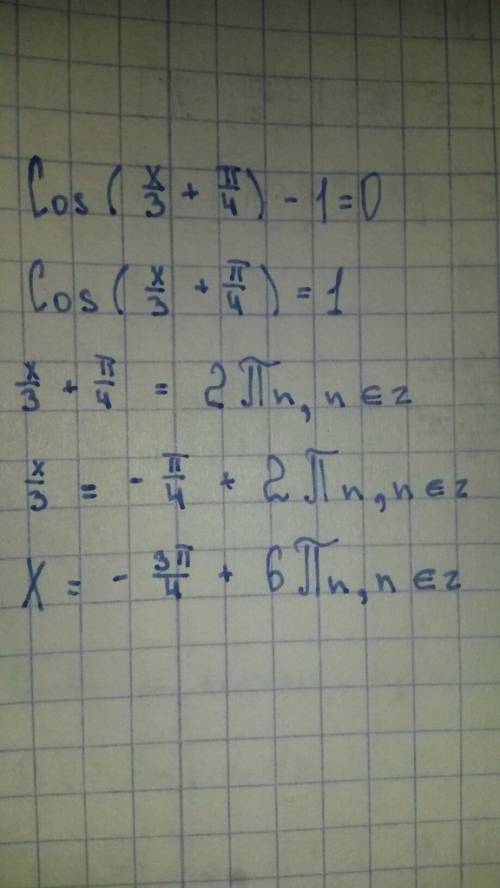 Cos( x/3 + π/4 ) - 1 = 0
Cos( x/3 + π/4 ) = 1
x/3 + π/4 = 2πn, n ∈ z
x/3 = - π/4 + 2πn, n ∈ z
X = - 3π/4 + 6πn, n ∈ z